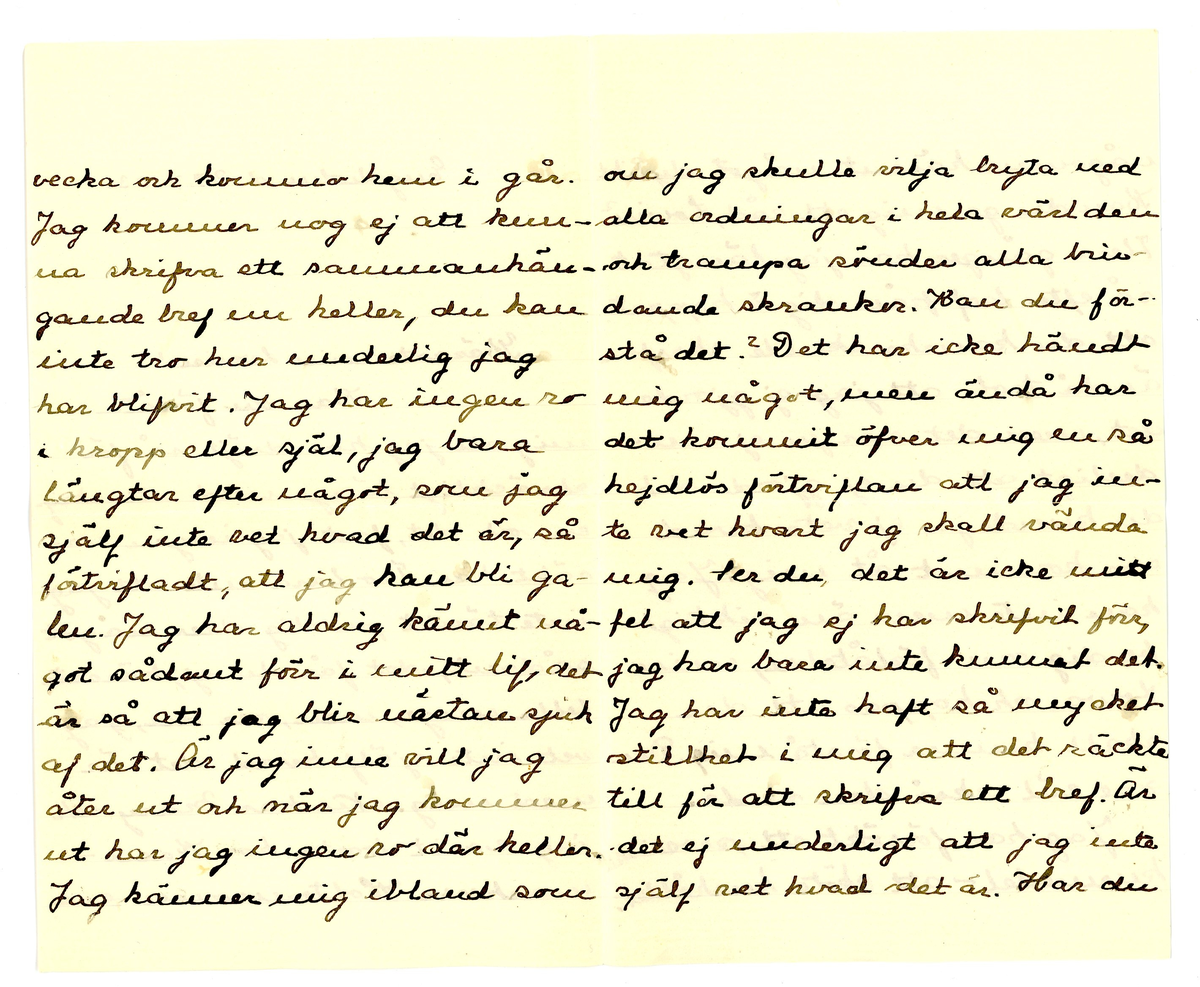 vecka och kommo hem i går.
Jag kommer nog ej att kun-
na skrifva ett sammanhän-
gande bref nu heller, du kan
inte tro hur underlig jag
har blifvit. Jag har ingen ro
i kropp eller själ, jag bara
längtar efter något, som jag
själf inte vet hvad det är, så
förtvifladt, att jag kan bli ga-
len. Jag har aldrig kännt nå-
got sådant förr i mitt lif, det
är så att jag blir nästan sjuk
af det. Är jag inne vill jag
åter ut och när jag kommer
ut har jag ingen ro där heller.
Jag känner mig ibland som
om jag skulle vilja bryta ned
alla ordningar i hela världen
och trampa sönder alla bin-
dande skrankor. Kan du för-
stå det? Det har icke händt
mig något, men ändå har
det kommit öfver mig en så
hejdlös förtviflan att jag in-
te vet hvart jag skall vända
mig. Ser du, det är icke mitt
fel att jag ej har skrifvit förr,
jag har bara inte kunnat det.
Jag har inte haft så mycket
stillhet i mig att det räckte
till för att skrifva ett bref. Är
det ej underligt att jag inte
själf vet hvad det är. Har du